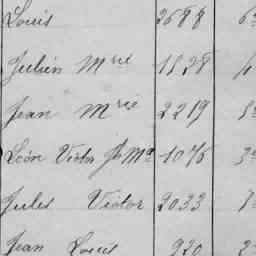 Louis 2688
Julien Mrie 1828
Jean Mrie 2219
Léon Victor Jh Ma 1076
Jules Victor 2033
Jean Louis 920